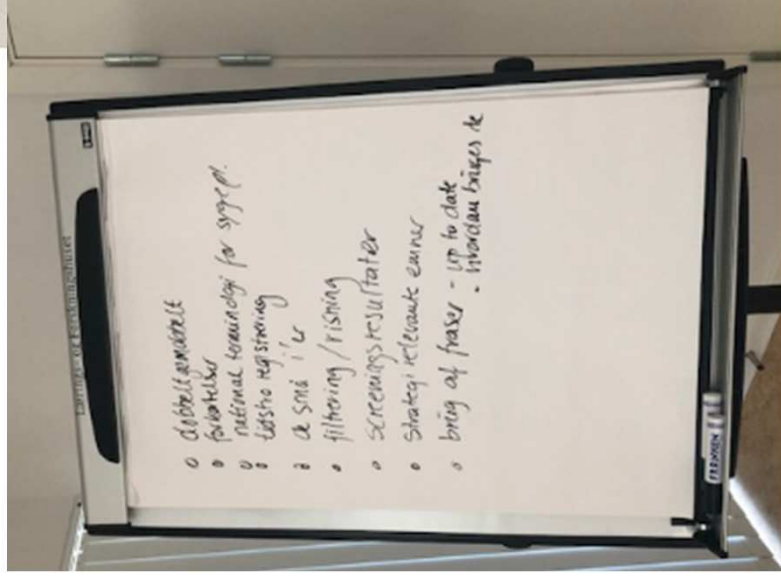 Lærings- og Forskningshuset
dobbelt
forkortelser
national terminologi for sygepl.
tidstro registrering
de små i'er
filtrering / visning
screeningsresultater
Strategi relevante emner
brug af fraser - up to date
- hvordan bruges de